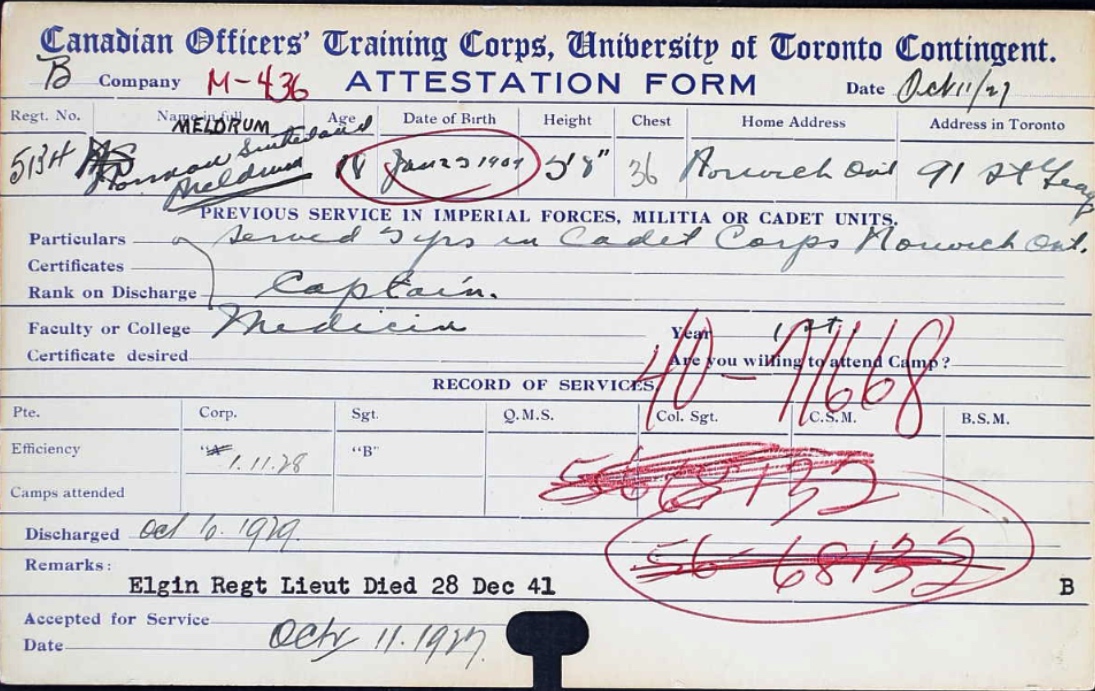 Canadian Officers' Training Corps, University of Toronto Contingent.
B Company M-436 ATTESTATION FORM Date Oct 11/27
Regt. No. Name in full Age Date of Birth Height Chest Home Address Address in Toronto
MELDRUM
5134 Norman Sutherland Meldrum 18 Jan 23 1909 5' 8" 36 Norwich Ont 91 St
PREVIOUS SERVICE IN IMPERIAL FORCES, MILITIA OR CADET UNITS.
Particulars Served 5 yrs in Cadet Corps Norwich Ont.
Certificates
Rank on Discharge Captain.
Faculty or College Medicin Year 1st.
Certificate desired Are you willing to attend Camp?
40-71668
RECORD OF SERVICES
Pte. Corp. Sgt. Q.M.S. Col. Sgt. C.S.M. B.S.M.
Efficiency 1.11.28 "B"
568132
Camps attended
Discharged Oct 6. 1929.
56-68132
Remarks:
Elgin Regt Lieut Died 28 Dec 41 B
Accepted for Service
Date Oct 11. 1927.